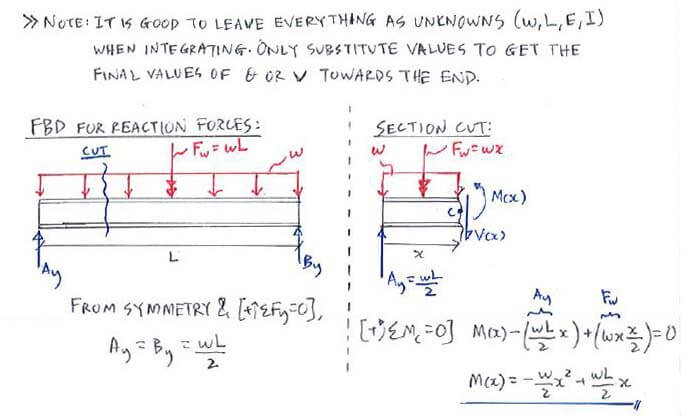 >> NOTE: IT IS GOOD TO LEAVE EVERYTHING AS UNKNOWNS (W,L,E,I)
WHEN INTEGRATING. ONLY SUBSTITUTE VALUES TO GET THE
FINAL VALUES OF θ OR V TOWARDS THE END.
FBD FOR REACTION FORCES:
CUT
Fw = wL
w
L
Ay
By
FROM SYMMETRY & [+↑ΣFy=0],
Ay = By = wL/2
SECTION CUT:
w
Fw = wx
M(x)
C
V(x)
x
Ay = wL/2
Ay
Fw
[+↺ΣMc=0] M(x) - (wL/2 x) + (wx x/2) = 0
M(x) = -w/2 x² + wL/2 x